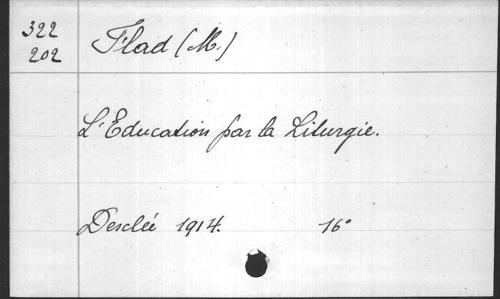 322
202
Flad (M.)
L'Education par la Liturgie.
Desclée 1914. 16°